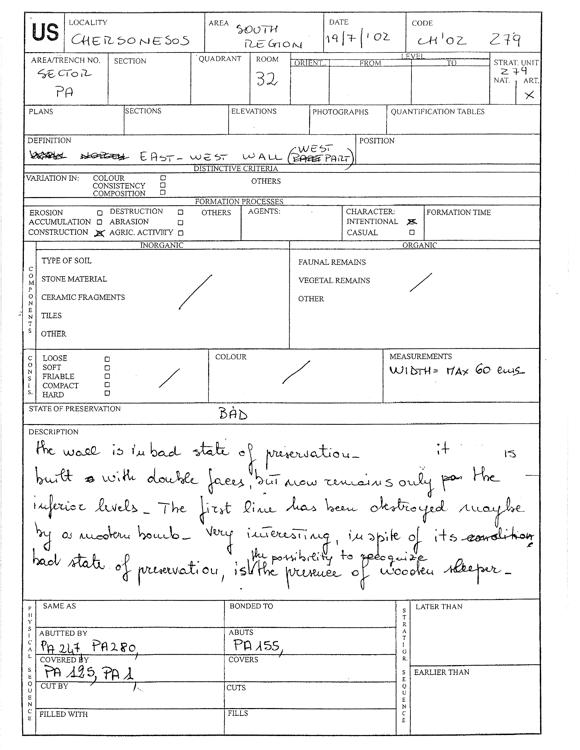 US
LOCALITY
CHERSONESOS
AREA SOUTH
REGION
DATE
19/7/'02
CODE
CH'02 Z79
AREA/TRENCH NO.
SECTOR
PA
SECTION
QUADRANT
ROOM
32
LEVEL
ORIENT. FROM TO
STRAT. UNIT
Z79
NAT. ART.
X
PLANS
SECTIONS
ELEVATIONS
PHOTOGRAPHS
QUANTIFICATION TABLES
DEFINITION
EAST-WEST WALL (WEST PART)
POSITION
DISTINCTIVE CRITERIA
VARIATION IN: COLOUR
CONSISTENCY
COMPOSITION
OTHERS
FORMATION PROCESSES
EROSION DESTRUCTION OTHERS
ACCUMULATION ABRASION
CONSTRUCTION AGRIC. ACTIVITY
AGENTS:
CHARACTER:
INTENTIONAL
CASUAL
FORMATION TIME
COMPONENTS
INORGANIC
TYPE OF SOIL
STONE MATERIAL
CERAMIC FRAGMENTS
TILES
OTHER
ORGANIC
FAUNAL REMAINS
VEGETAL REMAINS
OTHER
CONSIS.
LOOSE
SOFT
FRIABLE
COMPACT
HARD
COLOUR
MEASUREMENTS
WIDTH= MAX 60 cms
STATE OF PRESERVATION
BAD
DESCRIPTION
the wall is in bad state of preservation- it is
built with double faces, but now remains only the
inferior levels- The first line has been destroyed maybe
by a modern bomb- Very interesting, in spite of its condition
bad state of preservation, is the possibility to recognize the presence of wooden sleeper-
PHYSICAL SEQUENCE
SAME AS
BONDED TO
ABUTTED BY
PA 247 PA280,
ABUTS
PA 155,
COVERED BY
PA 125, PA 1
COVERS
CUT BY
CUTS
FILLED WITH
FILLS
STRATIGR. SEQUENCE
LATER THAN
EARLIER THAN